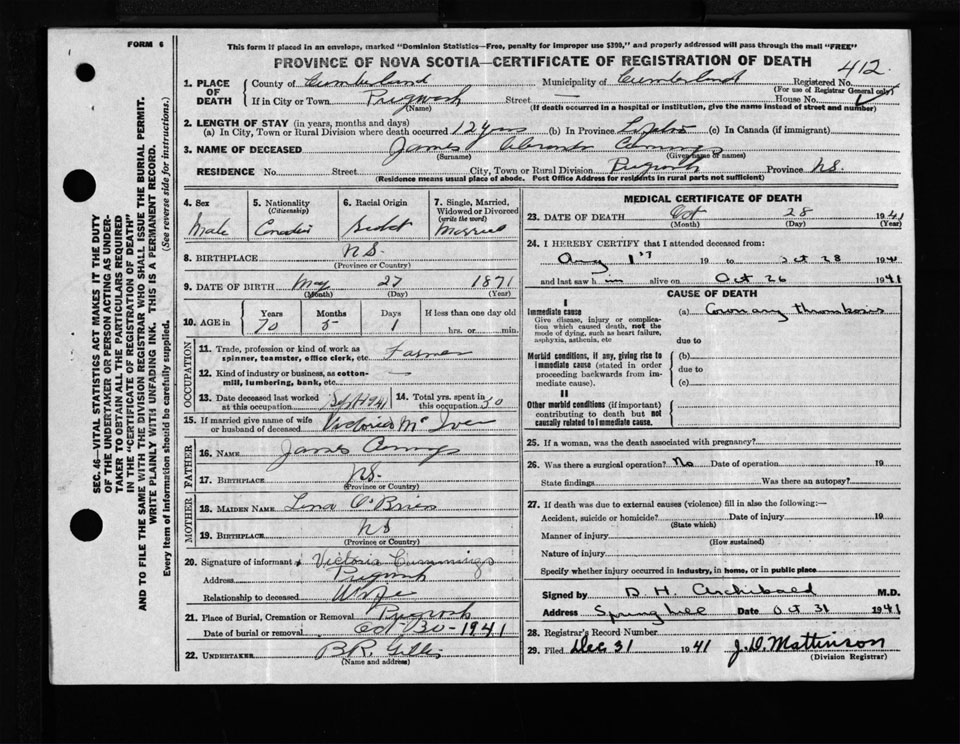 FORM 6
This form if placed in an envelope, marked "Dominion Statistics—Free, penalty for improper use $300," and properly addressed will pass through the mail "FREE"
PROVINCE OF NOVA SCOTIA—CERTIFICATE OF REGISTRATION OF DEATH
412
1. PLACE OF DEATH
County of Cumberland Municipality of Cumberland Registered No.
(For use of Registrar General only)
If in City or Town Pugwash Street — House No.
(Name) (If death occurred in a hospital or institution, give the name instead of street and number)
2. LENGTH OF STAY (in years, months and days)
(a) In City, Town or Rural Division where death occurred 12 yrs (b) In Province (c) In Canada (if immigrant)
3. NAME OF DECEASED James Cummings
(Surname) (Given name or names)
RESIDENCE No. Street City, Town or Rural Division Pugwash Province N.S.
(Residence means usual place of abode. Post Office Address for residents in rural parts not sufficient)
4. Sex
Male
5. Nationality
(Citizenship)
Canadian
6. Racial Origin
7. Single, Married, Widowed or Divorced
(write the word)
Married
8. BIRTHPLACE N.S.
(Province or Country)
9. DATE OF BIRTH May 27 1871
(Month) (Day) (Year)
10. AGE in Years Months Days If less than one day old
70 5 1 hrs. or min.
OCCUPATION
11. Trade, profession or kind of work as spinner, teamster, office clerk, etc. Farmer
12. Kind of industry or business, as cotton-mill, lumbering, bank, etc. —
13. Date deceased last worked at this occupation Sept 1941
14. Total yrs. spent in this occupation 30
15. If married give name of wife or husband of deceased Victoria McIver
FATHER
16. NAME James Cummings
17. BIRTHPLACE N.S.
(Province or Country)
MOTHER
18. MAIDEN NAME Lena O'Brien
19. BIRTHPLACE N S
(Province or Country)
20. Signature of informant Victoria Cummings
Address Pugwash
Relationship to deceased Wife
21. Place of Burial, Cremation or Removal Pugwash
Date of burial or removal Oct 30 - 1941
22. UNDERTAKER B.R.
(Name and address)
MEDICAL CERTIFICATE OF DEATH
23. DATE OF DEATH Oct 28 1941
(Month) (Day) (Year)
24. I HEREBY CERTIFY that I attended deceased from:
Aug 1st 19 to Oct 28 1941
and last saw him alive on Oct 26 1941
CAUSE OF DEATH
I
Immediate cause
Give disease, injury or complication which caused death, not the mode of dying, such as heart failure, asphyxia, asthenia, etc
(a) Coronary thrombosis
due to
Morbid conditions, if any, giving rise to immediate cause (stated in order proceeding backwards from immediate cause).
(b)
due to
(c)
II
Other morbid conditions (if important) contributing to death but not causally related to immediate cause.
25. If a woman, was the death associated with pregnancy?
26. Was there a surgical operation? No Date of operation 19
State findings Was there an autopsy?
27. If death was due to external causes (violence) fill in also the following:—
Accident, suicide or homicide? Date of injury 19
(State which)
Manner of injury
(How sustained)
Nature of injury
Specify whether injury occurred in industry, in home, or in public place
Signed by D. H. Archibald M.D.
Address Springhill Date Oct 31 1941
28. Registrar's Record Number
29. Filed Dec 31 1941 J. D. Mattinson
(Division Registrar)
SEC. 46—VITAL STATISTICS ACT MAKES IT THE DUTY
OF THE UNDERTAKER OR PERSON ACTING AS UNDER-
TAKER TO OBTAIN ALL THE PARTICULARS REQUIRED
IN THE "CERTIFICATE OF REGISTRATION OF DEATH"
AND TO FILE THE SAME WITH THE DIVISION REGISTRAR WHO SHALL ISSUE THE BURIAL PERMIT.
WRITE PLAINLY WITH UNFADING INK. THIS IS A PERMANENT RECORD.
Every item of information should be carefully supplied. (See reverse side for instructions.)